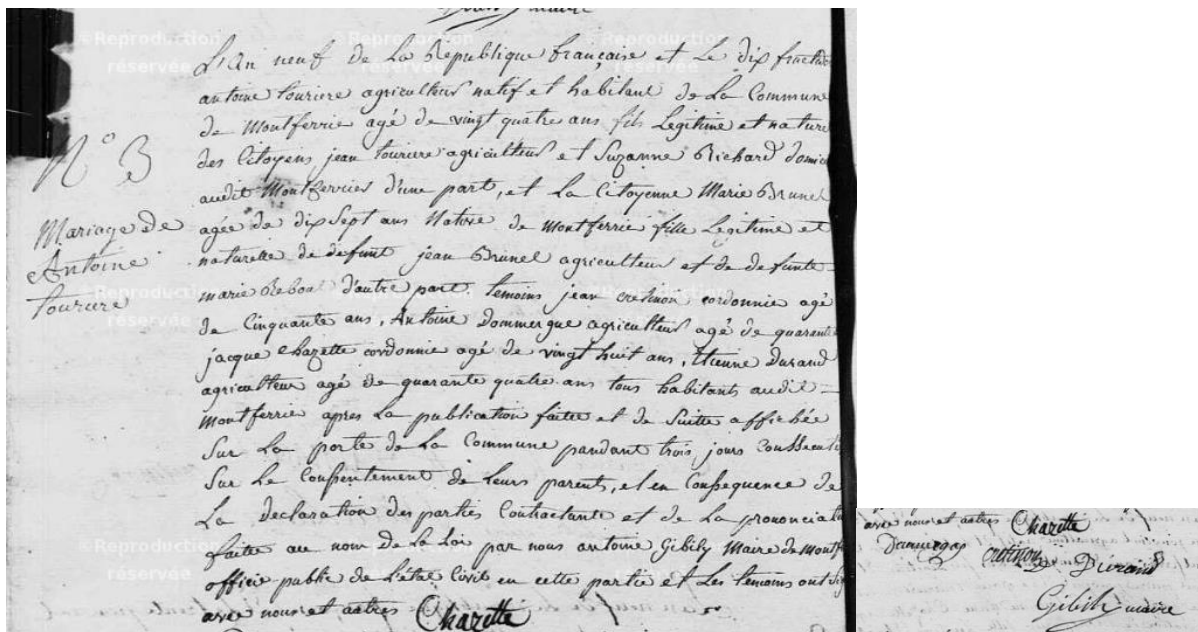 N° 3
Mariage de
Antoine
touriere
L'an neuf de La République française et Le dix fructid
antoine touriere agriculteur natif et habitant de La Commune
de Montferrie agé de vingt quatre ans fils Legitime et nature
des Citoyens jean touriere agriculteur et Suzanne Richard domici
audit Montferries d'une part, et La Citoyenne Marie Brunel
agée de dix Sept ans Native de Montferrie fille Legitime et
naturelle de defunt jean Brunel agriculteur et de defunte
marie Reboul d'autre part temoins jean cordonnie agé
de Cinquante ans, Antoine Dommergue agriculteur agé de quarante
jacque Chazette cordonnie agé de vingt huit ans, Etienne Durand
agriculteur agé de quarante quatre ans tous habitants audit
Montferrier apres La publication faitte et de Suitte affichée
Sur La porte de La Commune pandant trois jours Conssecutif
Sur Le Consentement de Leurs parents, et en Consequence de
La declaration des parties Contractante et de La prononciat
faitte au nom de La Loi par nous antoine Gibily Maire de Montf
officie public de L'état Civil en cette partie et Les temoins ont Sig
avec nous et autres Chazette
avec nous et autres Chazette
Dommergas Durand
Gibily maire
©Reproduction
réservée